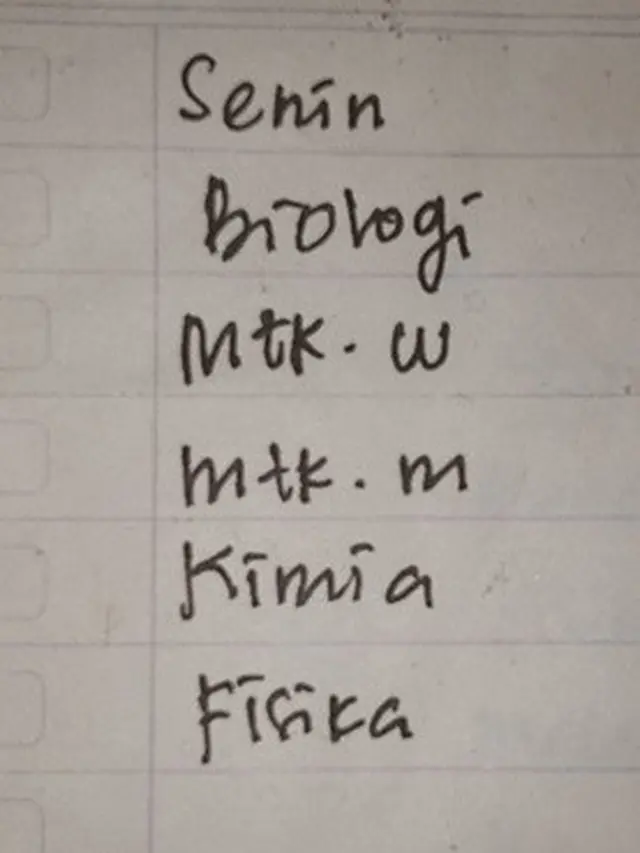 Senin
Biologi
Mtk. w
mtk. m
Kimia
Fisika